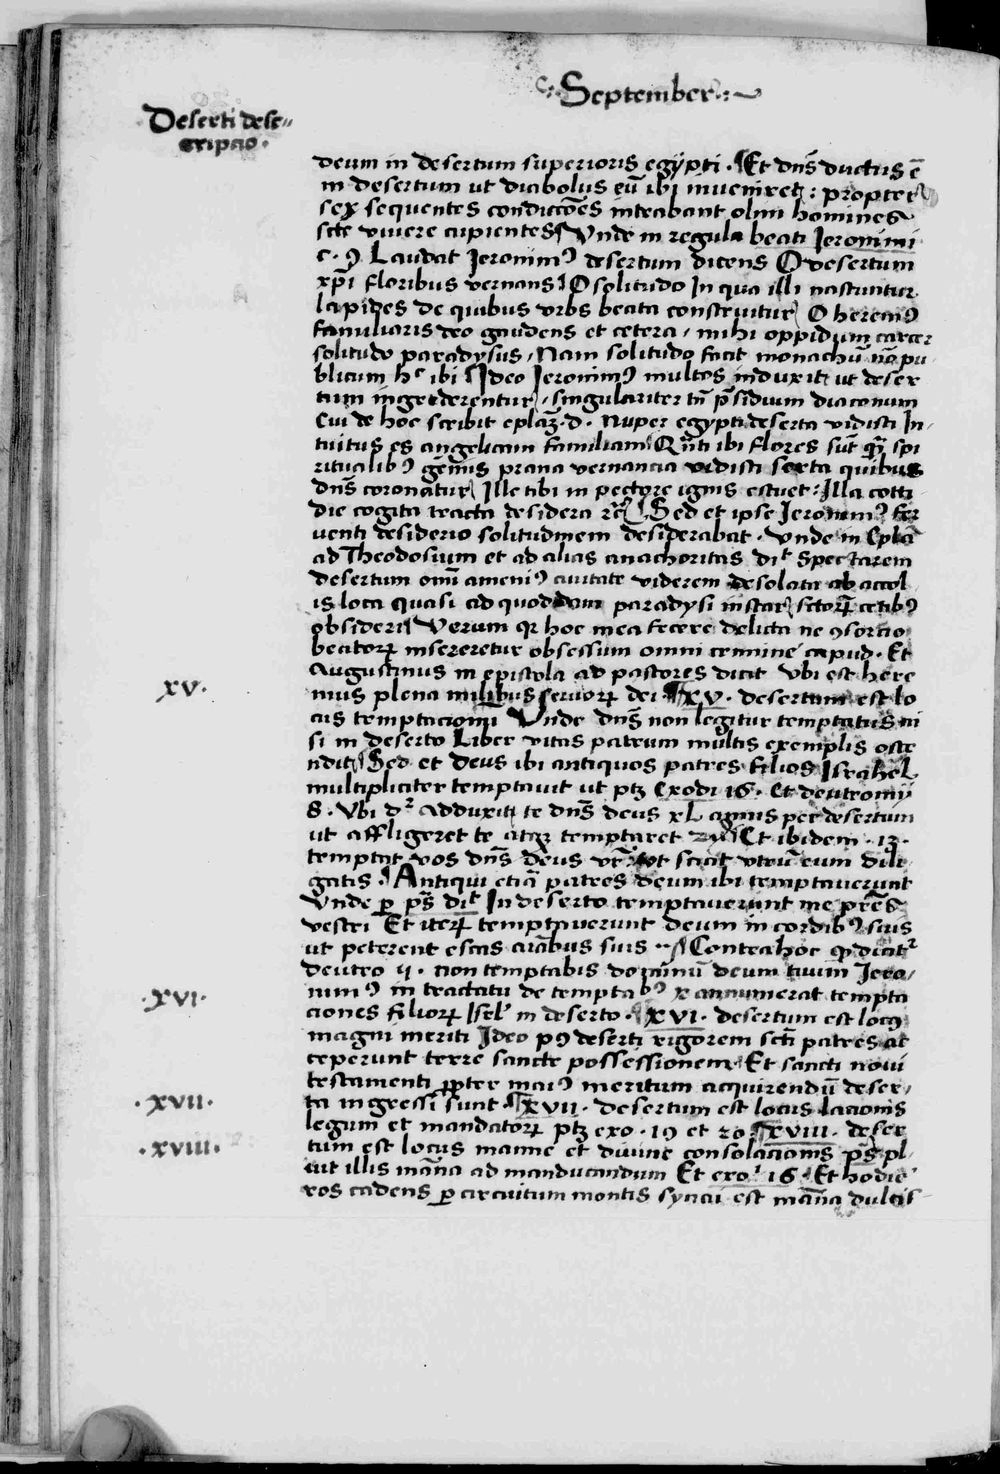 September
Deserti desc-
cripcio.
deum in desertum superioris egypti. Et dns̄ ductus ē
in desertum ut diabolus eū ibi inveniret: propter
sex sequentes condicōēs intrabant olim homines
scte vivere cupientes Unde in regula beati Jeronimi
c. 9 Laudat Jeronimꝰ desertum dicens O desertum
xpī floribus vernans O solitudo In qua illi nascuntur
lapides de quibus urbs beata construitur O heremꝰ
familiaris deo gaudens et cetera, mihi oppidum carcer
solitudo paradysus, Nam solitudo facit monachū nō pu
blicum hᶜ ibi Ideo Jeronimꝰ multos induxit ut deser
tum ingrederentur, singulariter tn̄ p̄sidium diaconum
Cui de hoc scribit eplaꝫ. d. Nuper egypti deserta vidisti In-
tuitus es angelicam familiam Qn̄ti ibi flores sūt qꝫ spi
ritualibꝰ gēmis prata vernancia vidisti serta quibus
dns̄ coronatur Ille tibi in pectore ignis estuet: Illa cotti
die cogita tracta desidera rc̄ Sed et ipse Jeronimꝰ fer
venti desiderio solitudinem desiderabat. Unde in Epl̄a
ad Theodosium et ad alias anachoritas diᵗ Spectarem
desertum omī ameniꝰ civitate viderem desolata ab accol
is loca quasi ad quoddam paradysi instar sctoꝝ cetibꝰ
obsideri Verum qꝛ hoc mea fecere delicta ne ꝯsorcio
beatoꝝ insereretur obsessum omni crimine capud. Et
Augustinus in epistola ad pastores dicit Ubi est here
xv.
mus plena milibus servoꝝ dei. xv. desertum est lo
cus temptacioni Unde dns̄ non legitur temptatus ni
si in deserto Liber vitas patrum multis exemplis oste
ndit Sed et deus ibi antiquos patres filios Israhel
multipliciter temptavit ut ptꝫ Exodi 16. Et deutromij
8. Ubi dʳ Adduxit te dns̄ deus xl annis per desertum
ut affligeret te atqꝫ temptaret Et ibidem. 13.
temptat vos dns̄ deus sciat utrū eum dili
gatis. Antiqui eciā patres deum ibi temptaverunt
Unde ꝑ ps̄ diᵗ In deserto temptaverunt me pr̄es
vestri Et iteꝝ temptaverunt deum in cordibꝰ suis
ut peterent escas aīabus suis.. Contra hoc qꝫ dicitʳ
deutro ij. non temptabis dominū deum tuum Jero,
.xvi.
nimꝰ in tractatu de temptabꝰ x annumerat tempta
ciones filioꝝ Isel̄ in deserto. xvi. desertum est locꝰ
magni meriti Ideo pꝰ deserti rigorem scti patres ac
ceperunt terre sancte possessionem Et sancti novi
testamenti ꝓpter maiꝰ meritum acquirendū deser,
.xvii.
ta ingressi sunt. xvii. desertum est locus lacionis
legum et mandatoꝝ ptꝫ exo. 19 et 20. xviii. deser
.xviii.
tum est locus manne et divine consolacionis ps̄ pl
uit illis māna ad manducandum Et exo. 16. Et hodie
ros cadens ꝑ circuitum montis synai est māna dulcis-